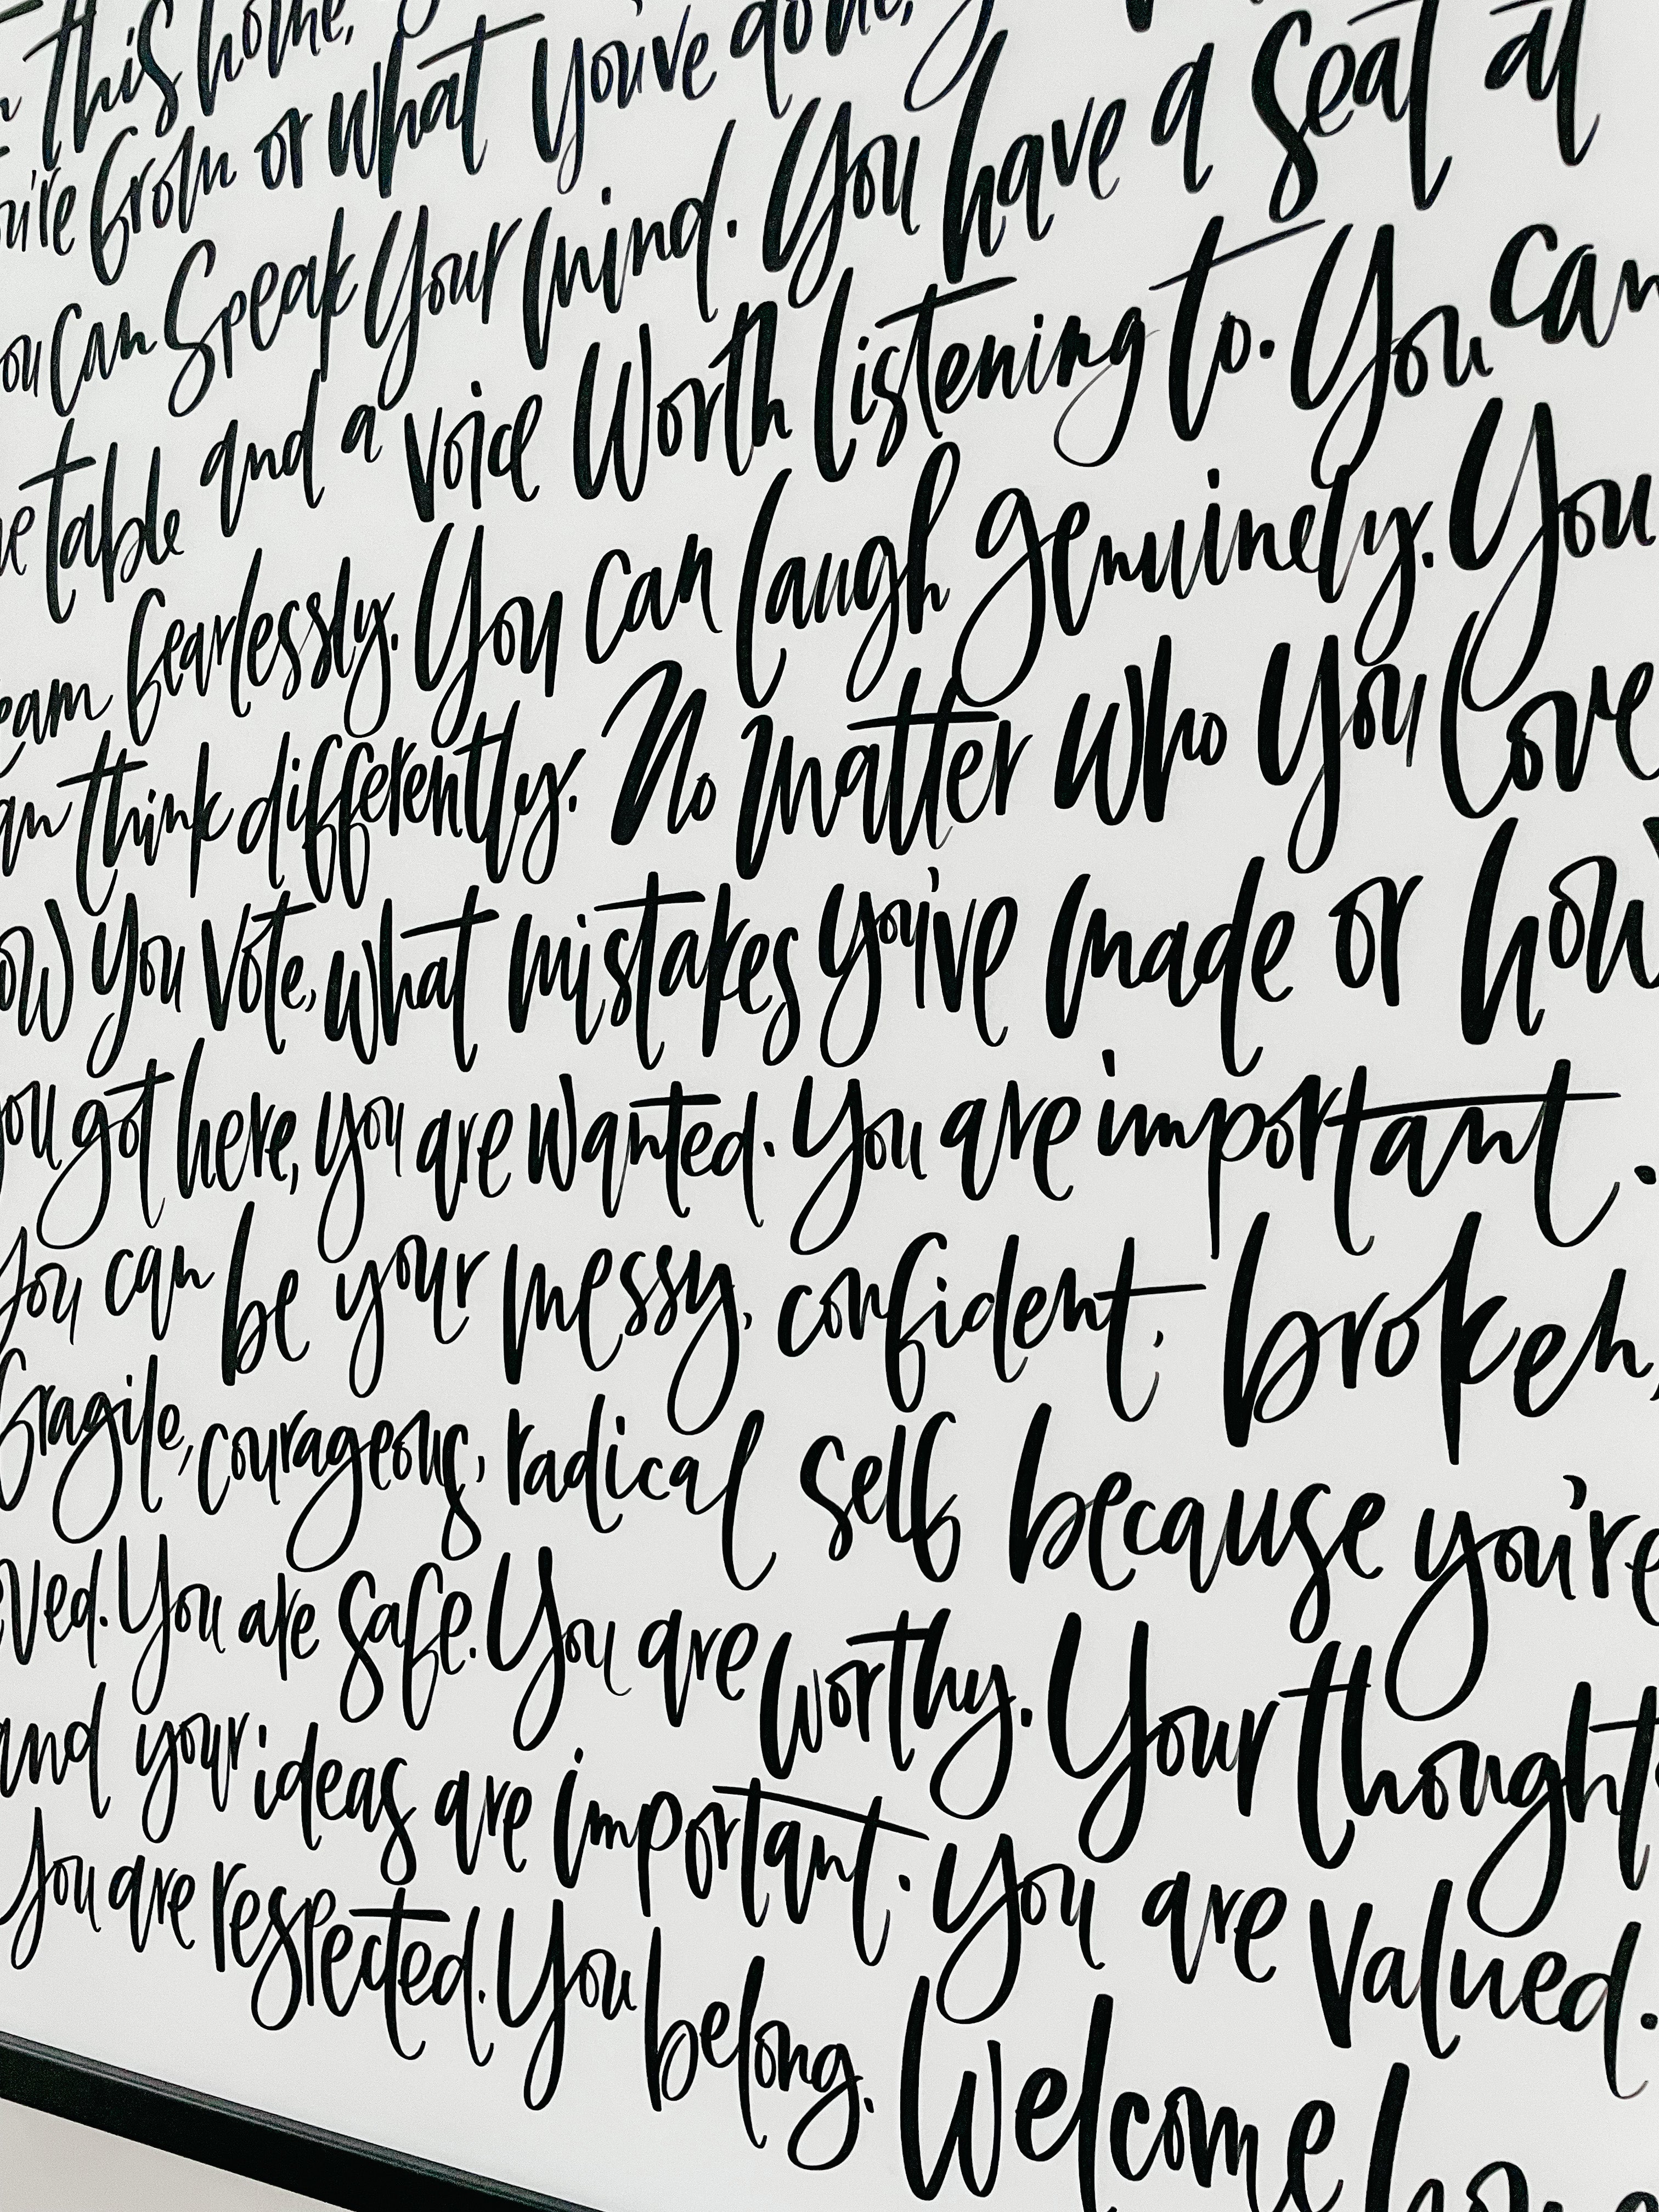 this home,
or what you've done,
from
you can speak your mind. You have a seat at
table and a voice worth listening to. You can
fearlessly. You can laugh genuinely. You
think differently. No matter who you love
you vote, what mistakes you've made or how
you got here, you are wanted. You are important.
You can be your messy, confident, broken,
fragile, courageous, radical self because you're
You are safe. You are worthy. Your thought
and your ideas are important. You are valued.
You are respected. You belong. Welcome